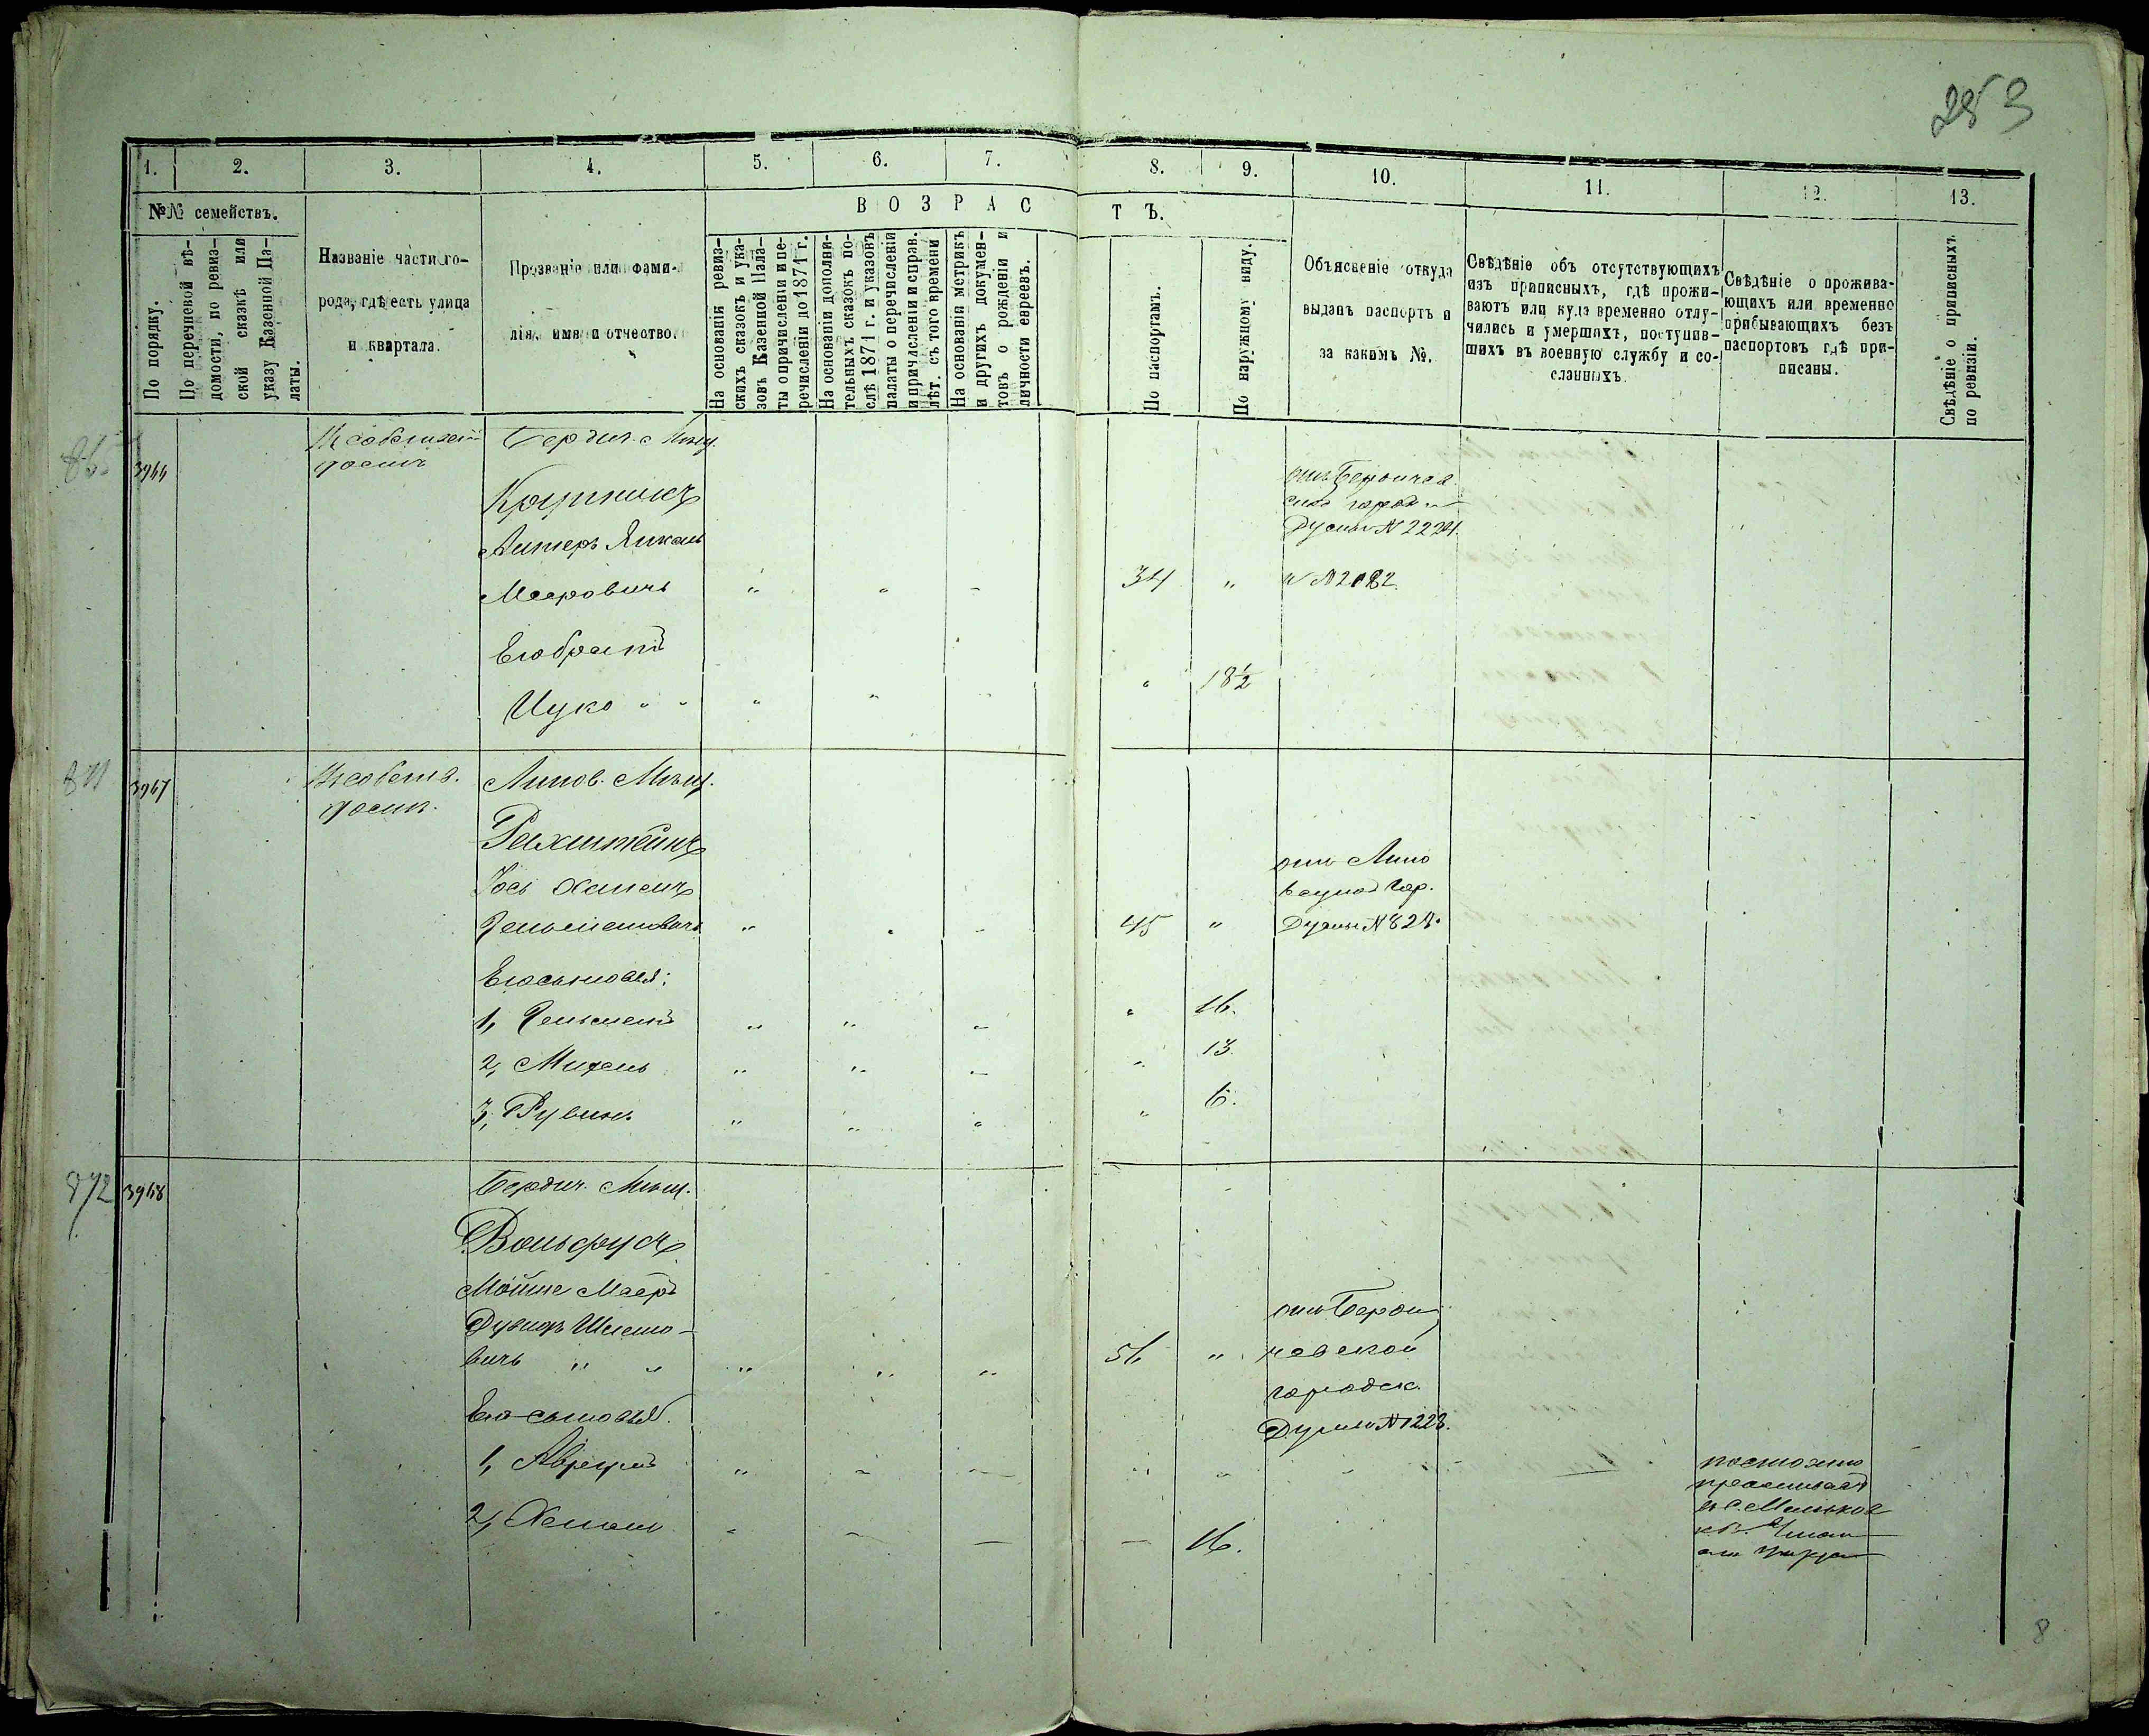 253
1.
2.
3.
4.
5.
6.
7.
8.
9.
10.
11.
12.
13.
№№ семействъ.
ВОЗРАСТЪ.
По порядку.
По перечневой вѣ-
домости, по ревиз-
ской сказкѣ или
указу Казенной Па-
латы.
Названіе части го-
рода, гдѣ есть улица
и квартала.
Прозваніе или фами-
лія, имя и отчество.
На основаніи ревиз-
скихъ сказокъ и ука-
зовъ Казенной Пала-
ты о причисленіи и пе-
речисленіи до 1871 г.
На основаніи дополни-
тельныхъ сказокъ по-
слѣ 1871 г. и указовъ
палаты о перечисленіи
и причисленіи и справ.
лѣт. съ того времени
На основаніи метрикъ
и другихъ докумен-
товъ о рожденіи и
личности евреевъ.
По паспортамъ.
По наружному виду.
Объясненіе откуда
выданъ паспортъ и
за какимъ №.
Свѣдѣніе объ отсутствующихъ
изъ приписныхъ, гдѣ прожи-
ваютъ или куда временно отлу-
чились и умершихъ, поступив-
шихъ въ военную службу и со-
сланныхъ.
Свѣдѣніе о прожива-
ющихъ или временно
прибывающихъ безъ
паспортовъ гдѣ при-
писаны.
Свѣдѣніе о приписныхъ
по ревизіи.
3966
Бердич. Мѣщ.
Крупникъ
Мееровичъ " " - 34 " и № 2182
Думы № 2224.
Его братъ
Ицко " " " " - " 18½
871 3967
Липов. Мѣщ.
Рахштейнъ
отъ Липо
вецкой Гор.
" " - 45 " Думы № 824.
Его сыновья:
1, Зельменъ " " - " 16.
2, Михель " " - " 13
3, Рувинъ " " " " 6.
872 3968
Бердич. Мѣщ.
Вольфусъ
Мойше Мееръ
Дувидъ Шлемо-
вичъ " " " " " 56 "
отъ Берди
чевской
городск.
Думы № 1223.
Его сыновья.
1, Аврумъ " - - " "
2, - - - - 16.
постоянно
проживаетъ
8